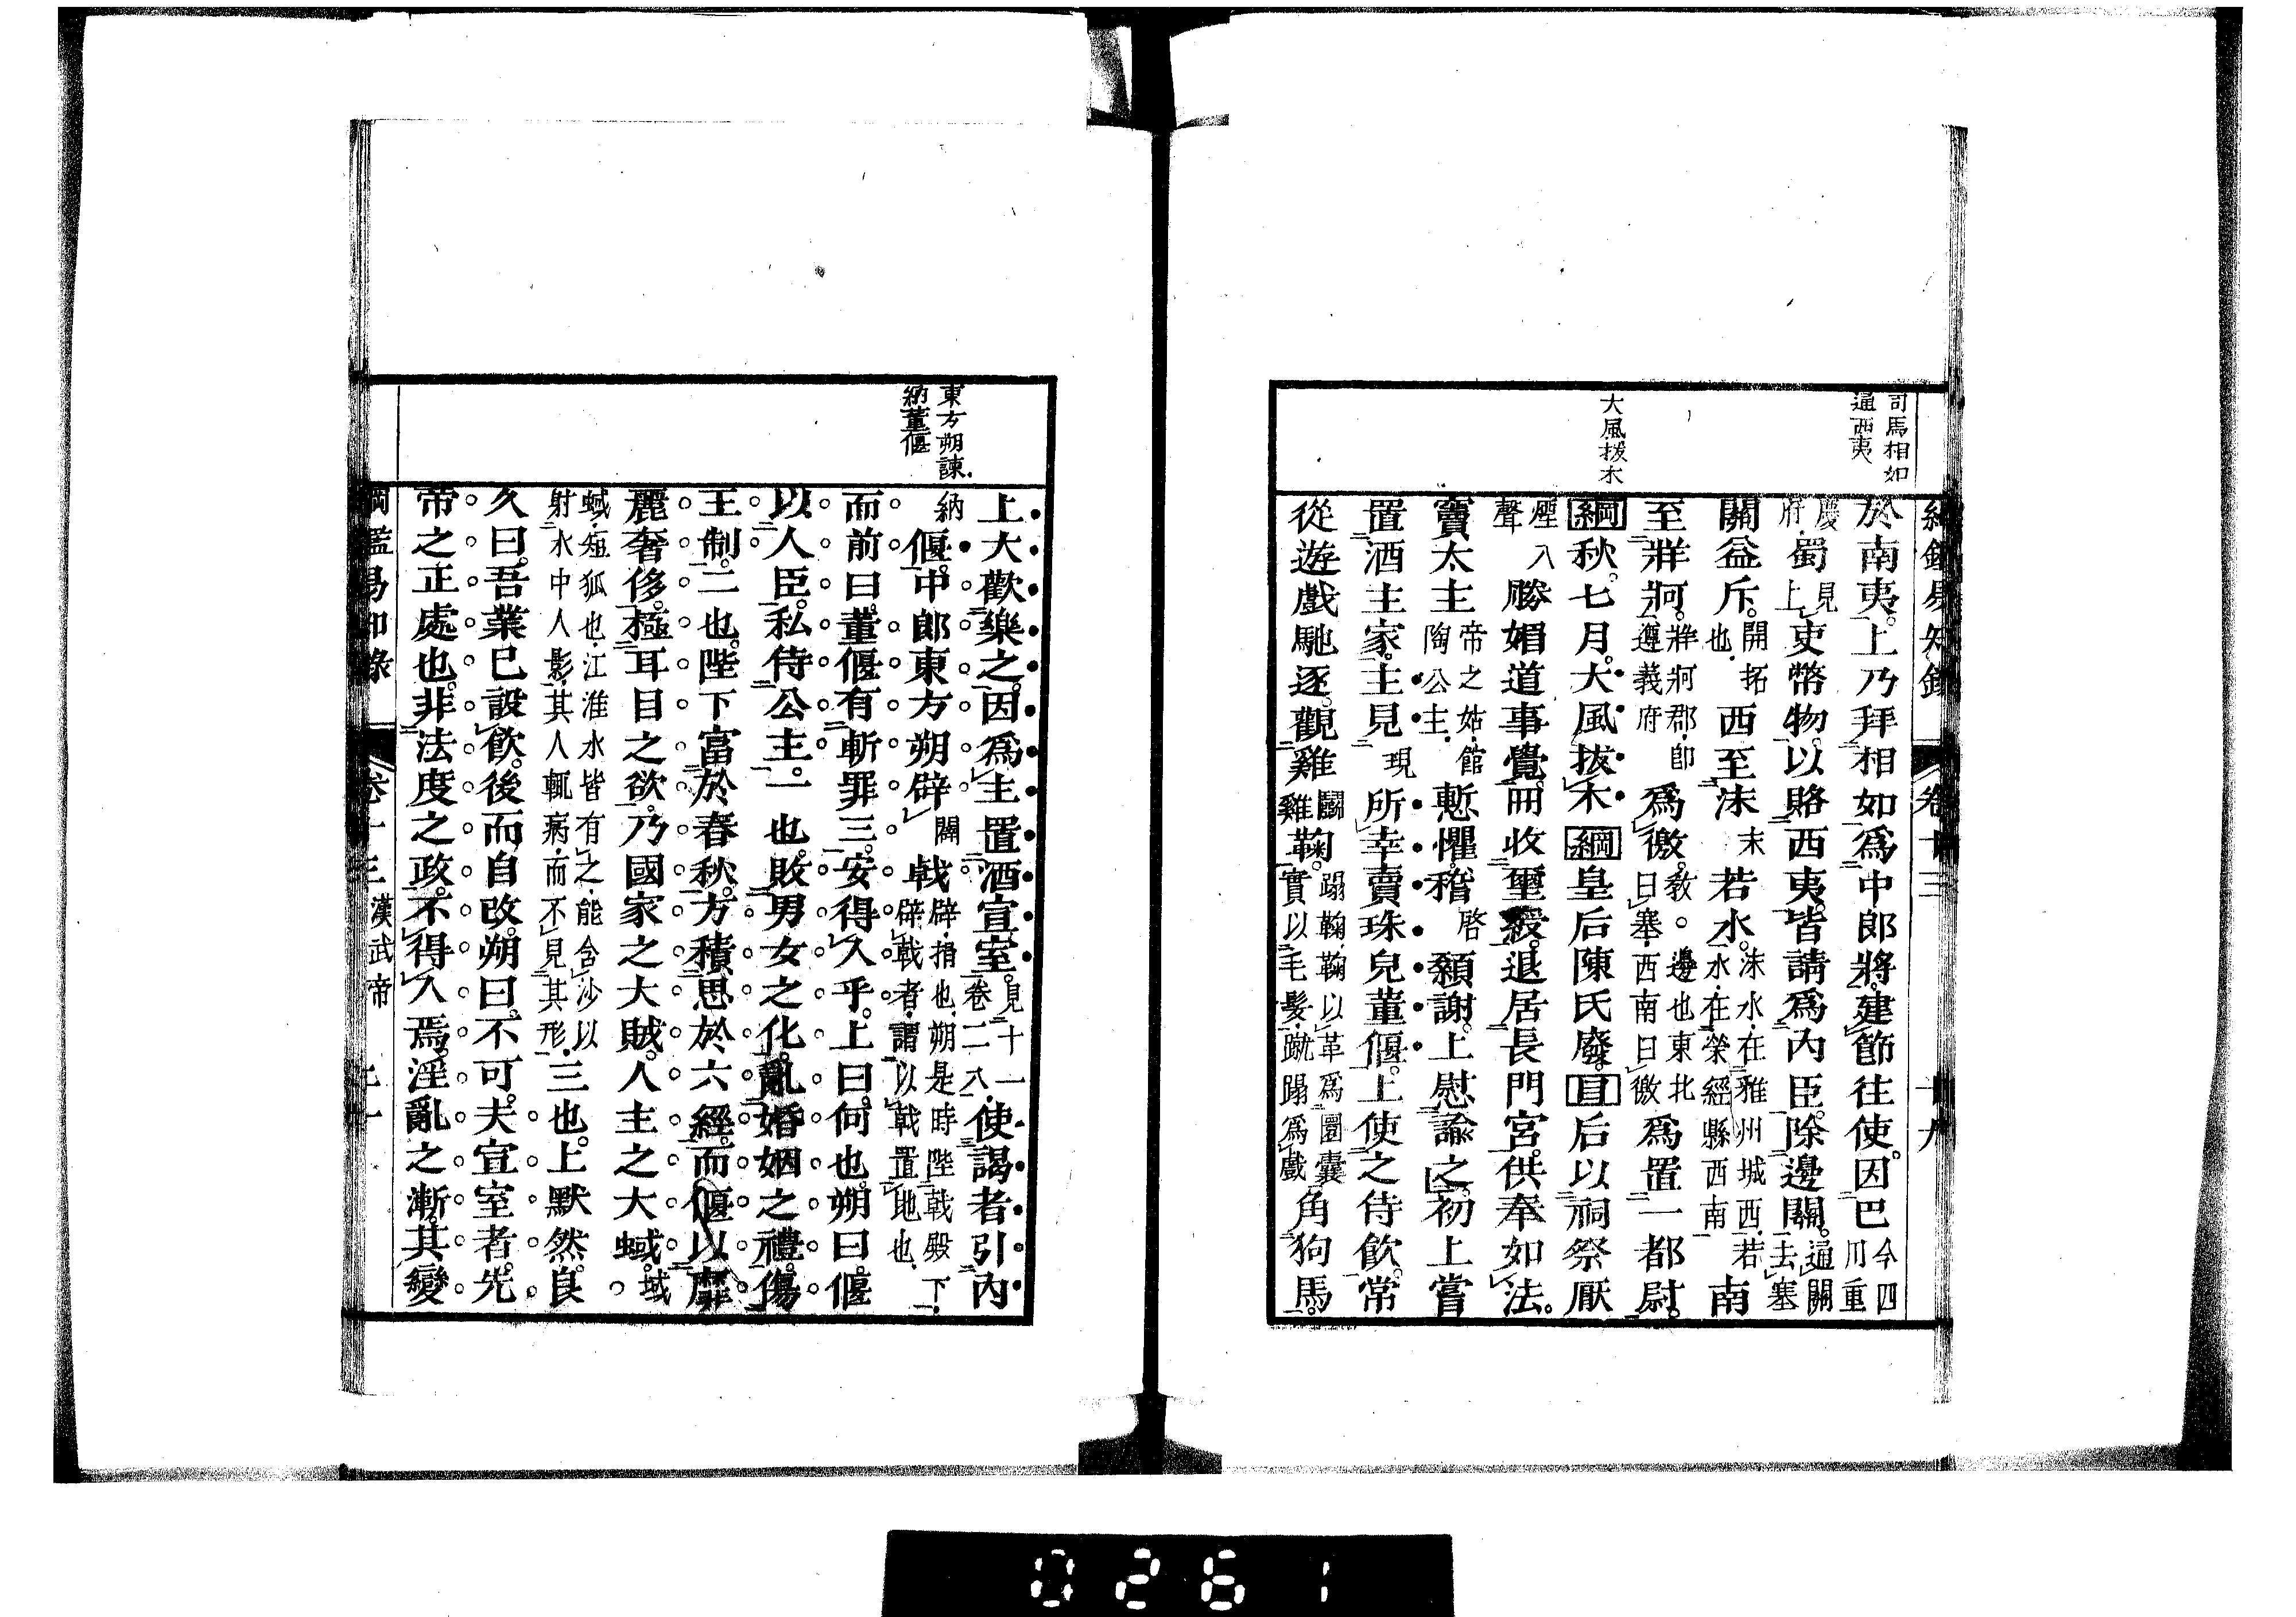 綱鑑易知錄 卷十三 十九
司馬相如
通西夷
大風拔木
於南夷上乃拜相如爲中郎將建節往使因巴今四川重
慶府蜀見上吏幣物以賂西夷皆請爲內臣除邊關通關去塞
關益斥開拓也西至沬末若水沬水在雅州城西若水在榮經縣西南南
至牂牁牂牁郡卽遵義府爲徼敎。邊也東北曰塞西南曰徼爲置一都尉
綱秋七月大風拔木綱皇后陳氏廢目后以祠祭厭
煙入聲勝媚道事覺冊收璽綬退居長門宮供奉如法
竇太主帝之姑館陶公主慙懼稽啓顙謝上慰諭之初上嘗
置酒主家主見現所幸賣珠兒董偃上使之侍飮常
從遊戲馳逐觀雞鬭雞鞠蹋鞠鞠以革爲圜囊實以毛髮蹴蹋爲戲角狗馬
東方朔諫
納董偃
上大歡樂之因爲主置酒宣室見十一卷二八使謁者引內
納偃中郎東方朔辟闢戟辟捎也朔是時陛戟殿下辟戟者謂以戟置地也
而前曰董偃有斬罪三安得入乎上曰何也朔曰偃
以人臣私侍公主一也敗男女之化亂婚姻之禮傷
王制二也陛下富於春秋方積思於六經而偃以靡
麗奢侈極耳目之欲乃國家之大賊人主之大蜮域
蜮短狐也江淮水皆有之能含沙以射水中人影其人輒病而不見其形三也上默然良
久曰吾業已設飮後而自改朔曰不可夫宣室者先
帝之正處也非法度之政不得入焉淫亂之漸其變
綱鑑易知錄 卷十三 漢武帝